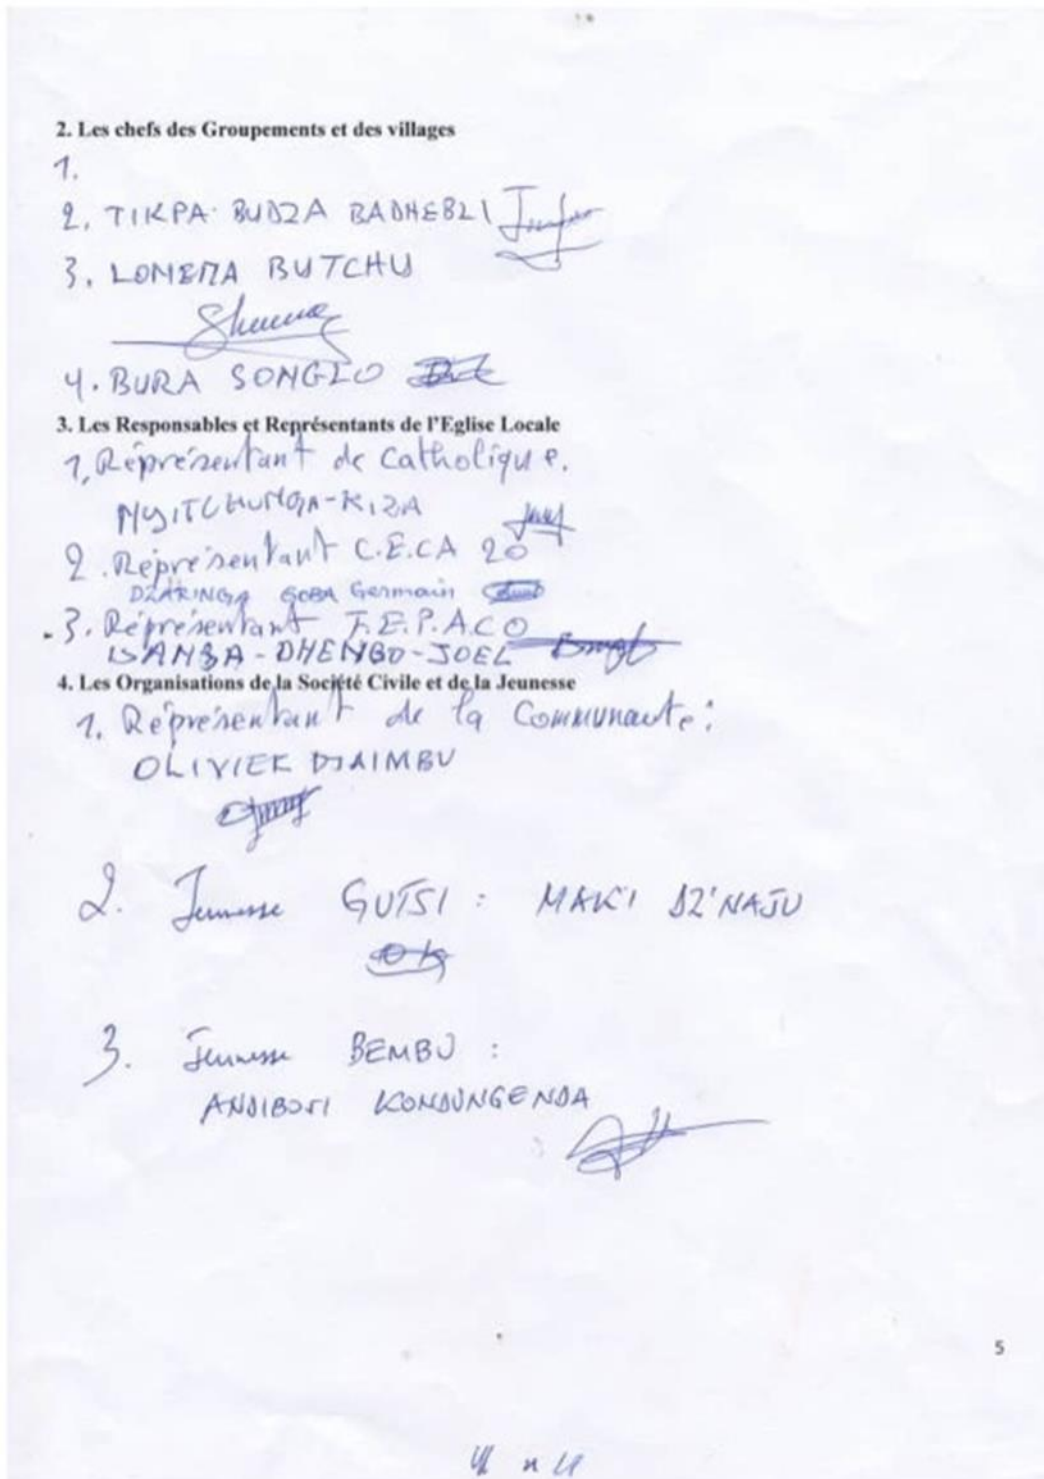 2. Les chefs des Groupements et des villages
1.
2. TIKPA BUDZA BADHEBLI
3. LOMEMA BUTCHU
4. BURA SONGIO
3. Les Responsables et Représentants de l'Eglise Locale
1, Réprésentant de Catholique.
NYITCHUNGA-KIZA
2. Réprésentant C.E.CA 20
DZARINGA GOBA Germain
3. Réprésentant F.E.P.A.CO
DHENBO-JOEL
4. Les Organisations de la Société Civile et de la Jeunesse
1. Réprésentant de la Communauté:
OLIVIER DJAIMBU
2. Jeunesse GUTSI : MAKI DZ'NAJU
3. Jeunesse BEMBU :
ANDIBOSI KONDUNGENDA
5